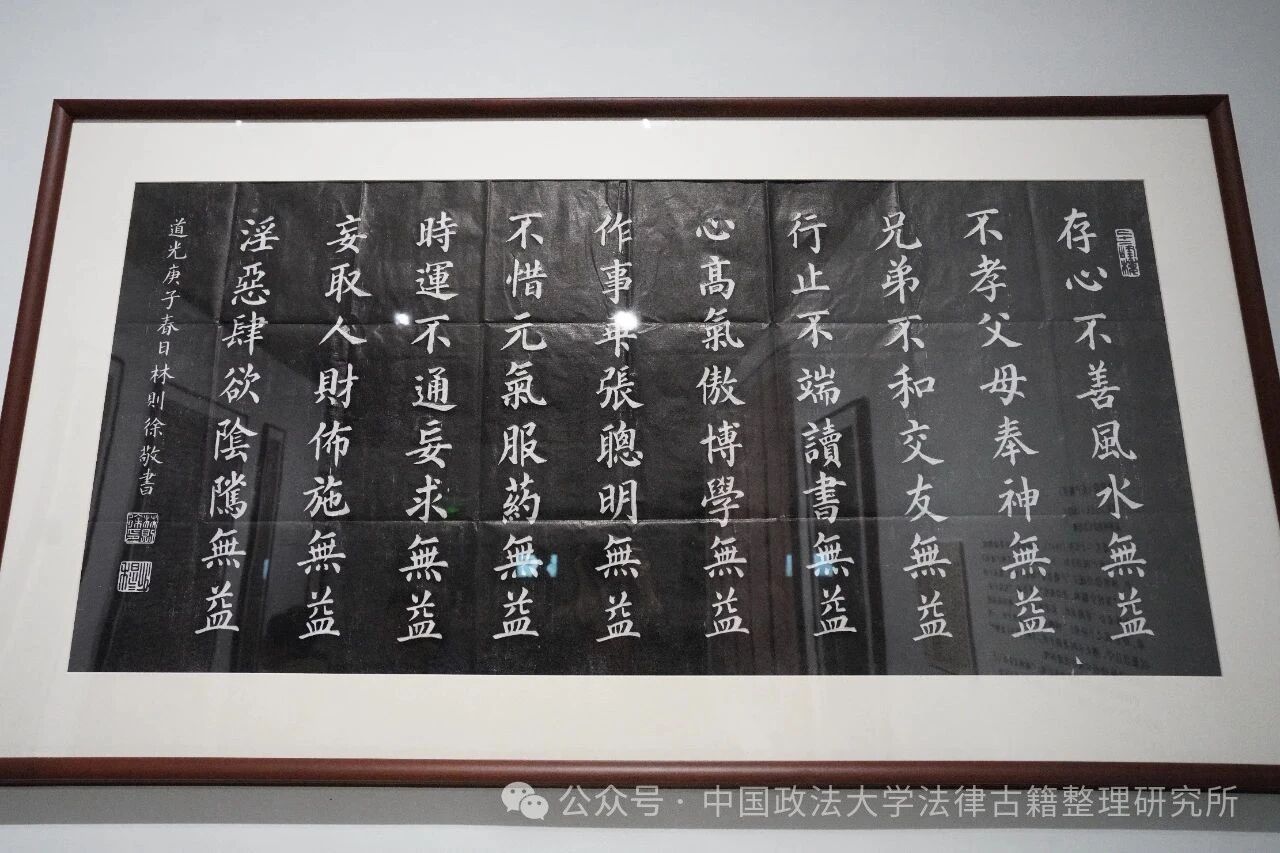 存心不善風水無益
不孝父母奉神無益
兄弟不和交友無益
行止不端讀書無益
心高氣傲博學無益
作事乖張聰明無益
不惜元氣服藥無益
時運不通妄求無益
妄取人財佈施無益
淫惡肆欲陰騭無益
道光庚子春日林則徐敬書
公众号·中国政法大学法律古籍整理研究所